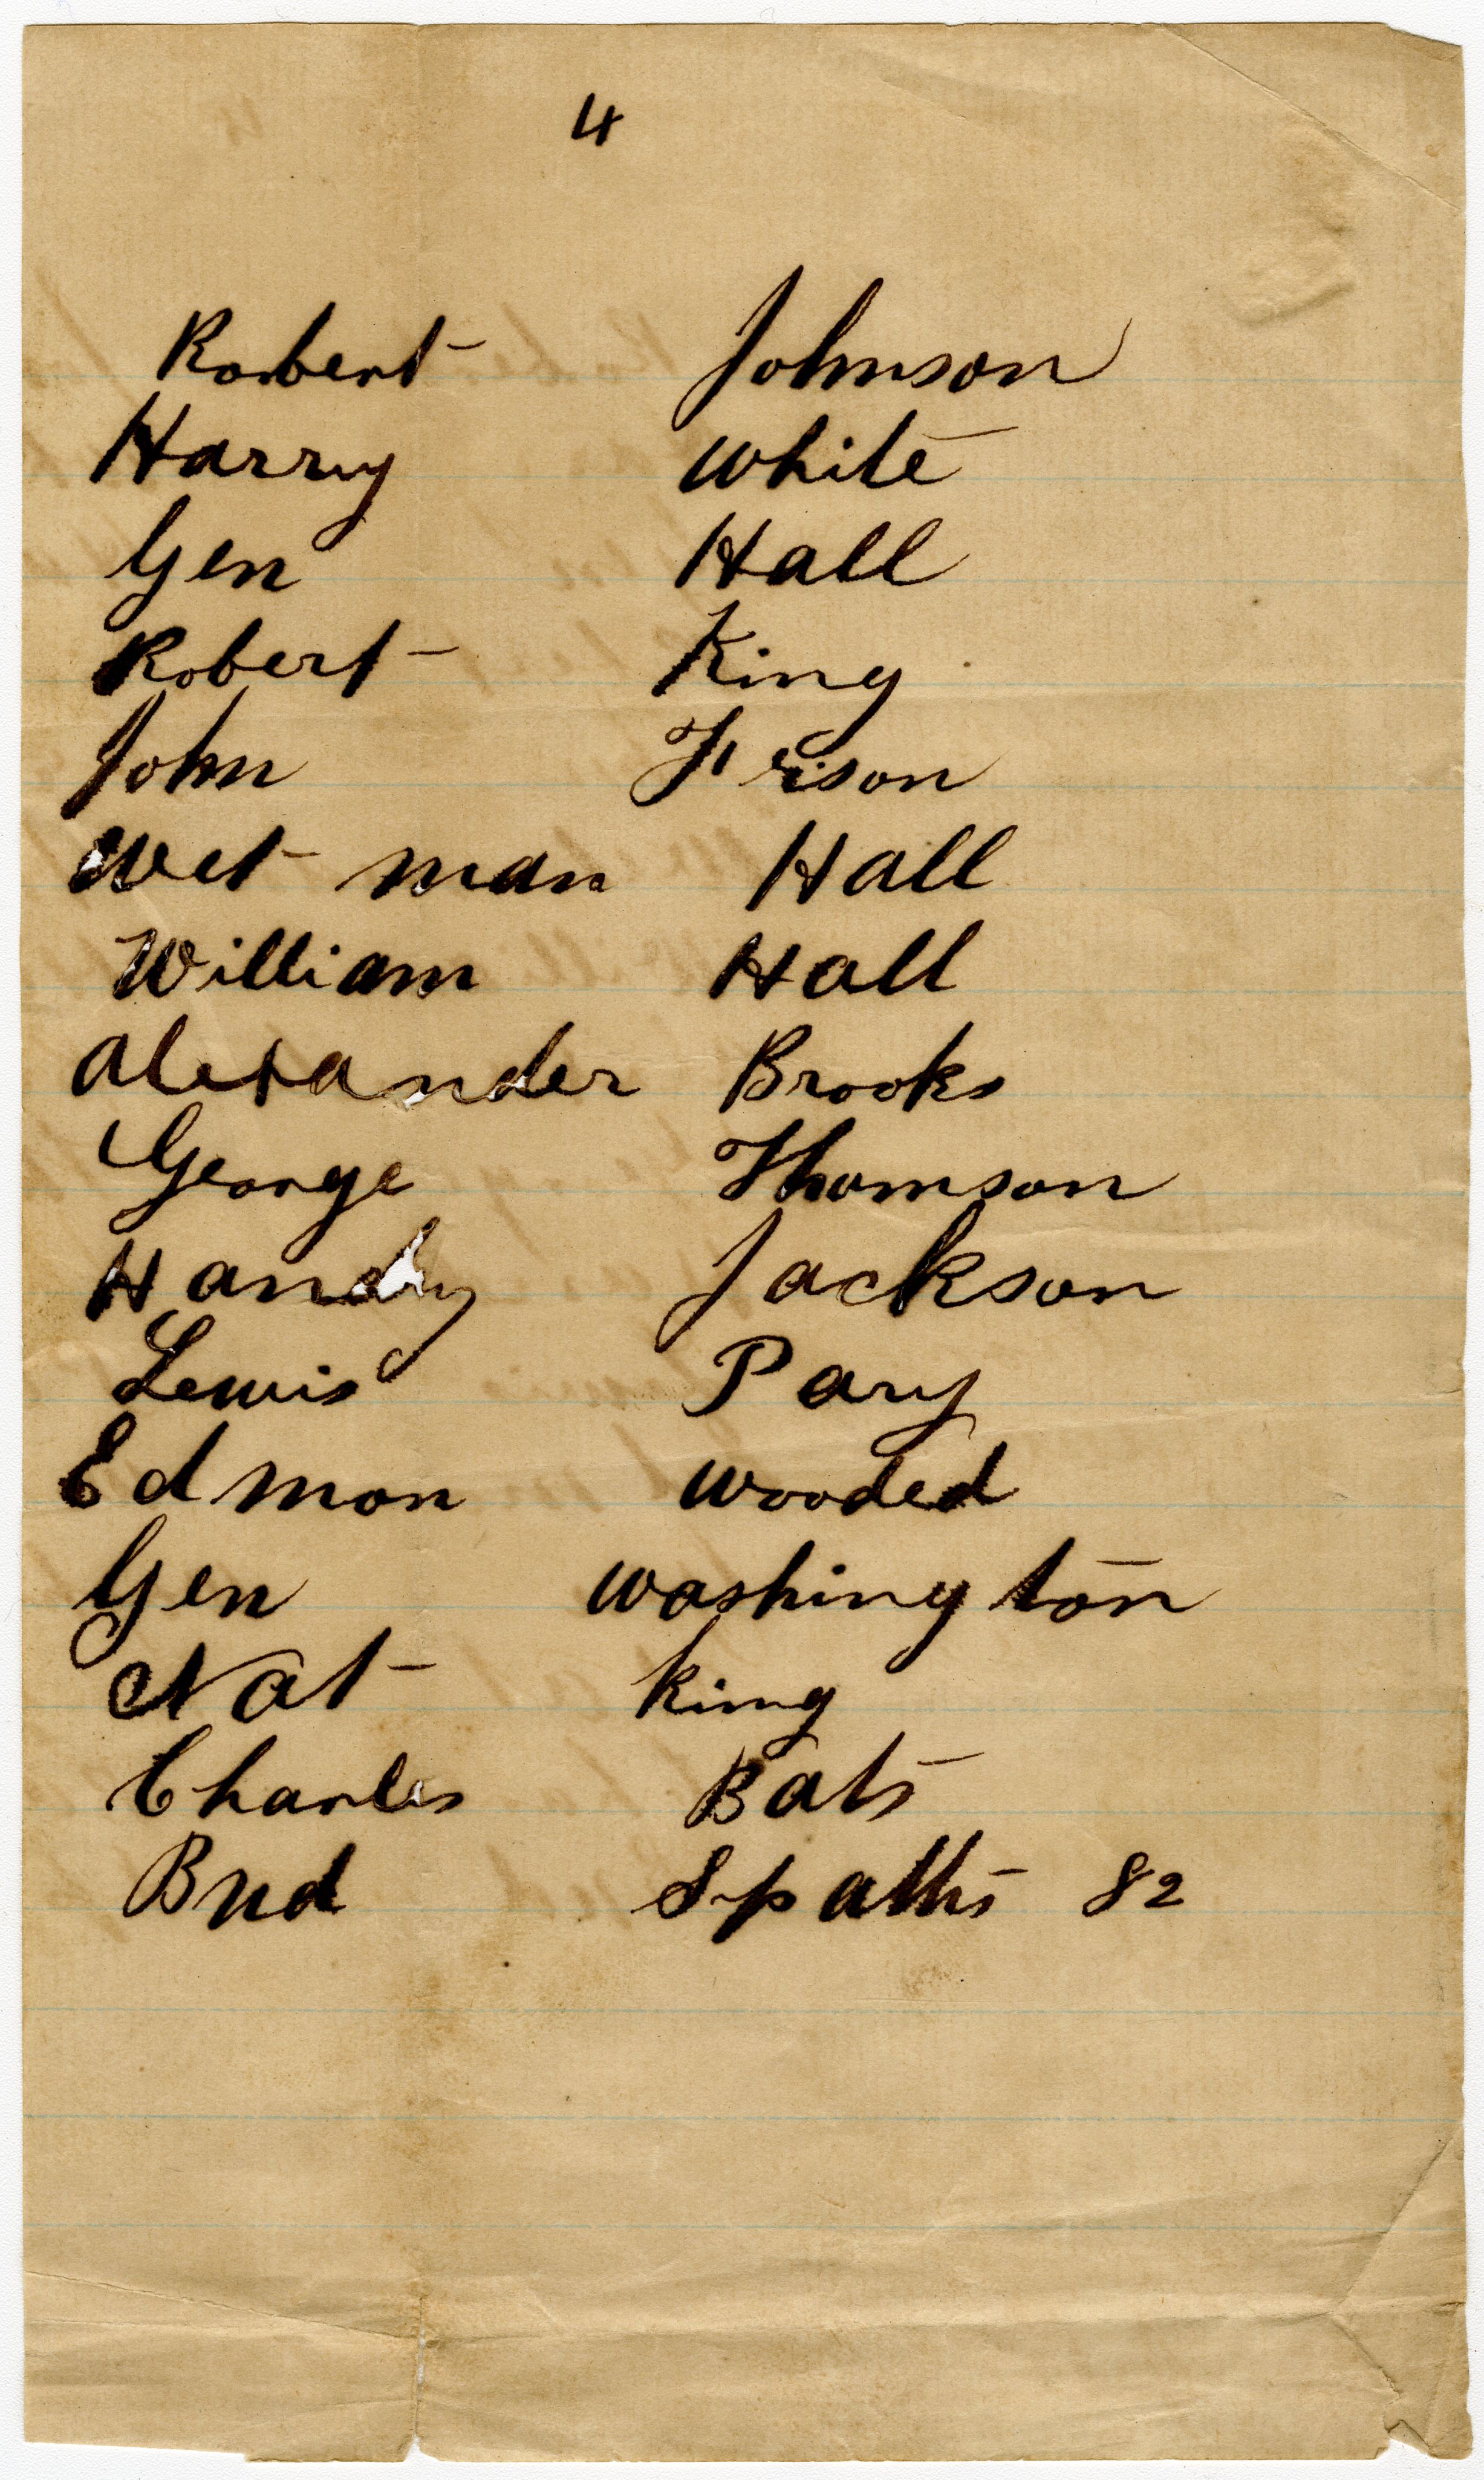 4
Robert Johnson
Harry white
Gen Hall
Robert King
John Frison
Wet man Hall
William Hall
Alexander Brooks
George Thomson
Handy Jackson
Lewis Pary
Edmon wooded
Gen washington
Nat king
Charles Bats
Bud Spaths 82